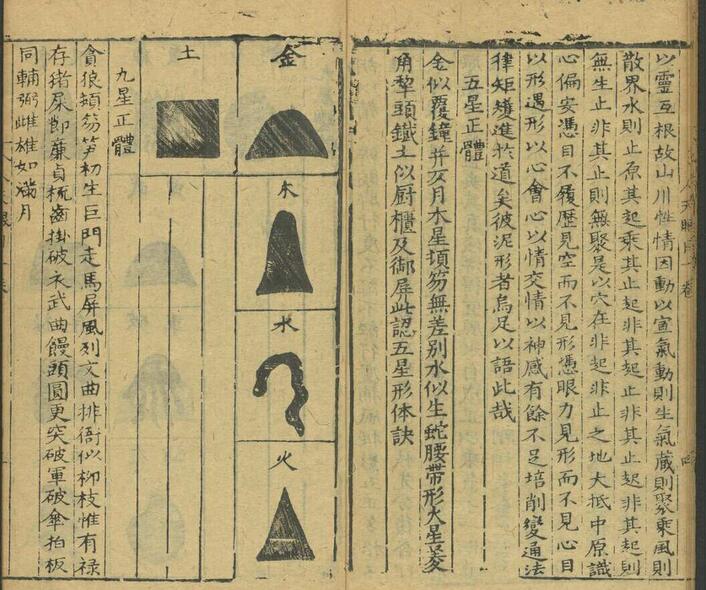 以靈互根故山川性情因動以宣氣動則生氣蔵則聚乘風則
散界水則止原其起乘其止起非其起止非其止起非其起則
無生止非其止則無聚是以穴在非起非止之地大抵中原識
心偏安憑目不履歴見空而不見形憑眼力見形而不見心目
以形遇形以心會心以情交情以神感有餘不足培削變通法
律矩矱進於道矣彼泥形者烏足以語此哉
五星正體
金似覆鐘并仄月木星頓笏無差別水似生蛇腰帶形火星菱
角犂頭鐵土似厨櫃及御屏此認五星形体訣
金
木
水
火
土
九星正體
貪狼頓笏笋初生巨門走馬屏風列文曲排衙似柳枝惟有禄
存猪屎卽亷貞梳齒掛破衣武曲饅頭圓更突破軍破傘拍板
同輔弼雌雄如滿月